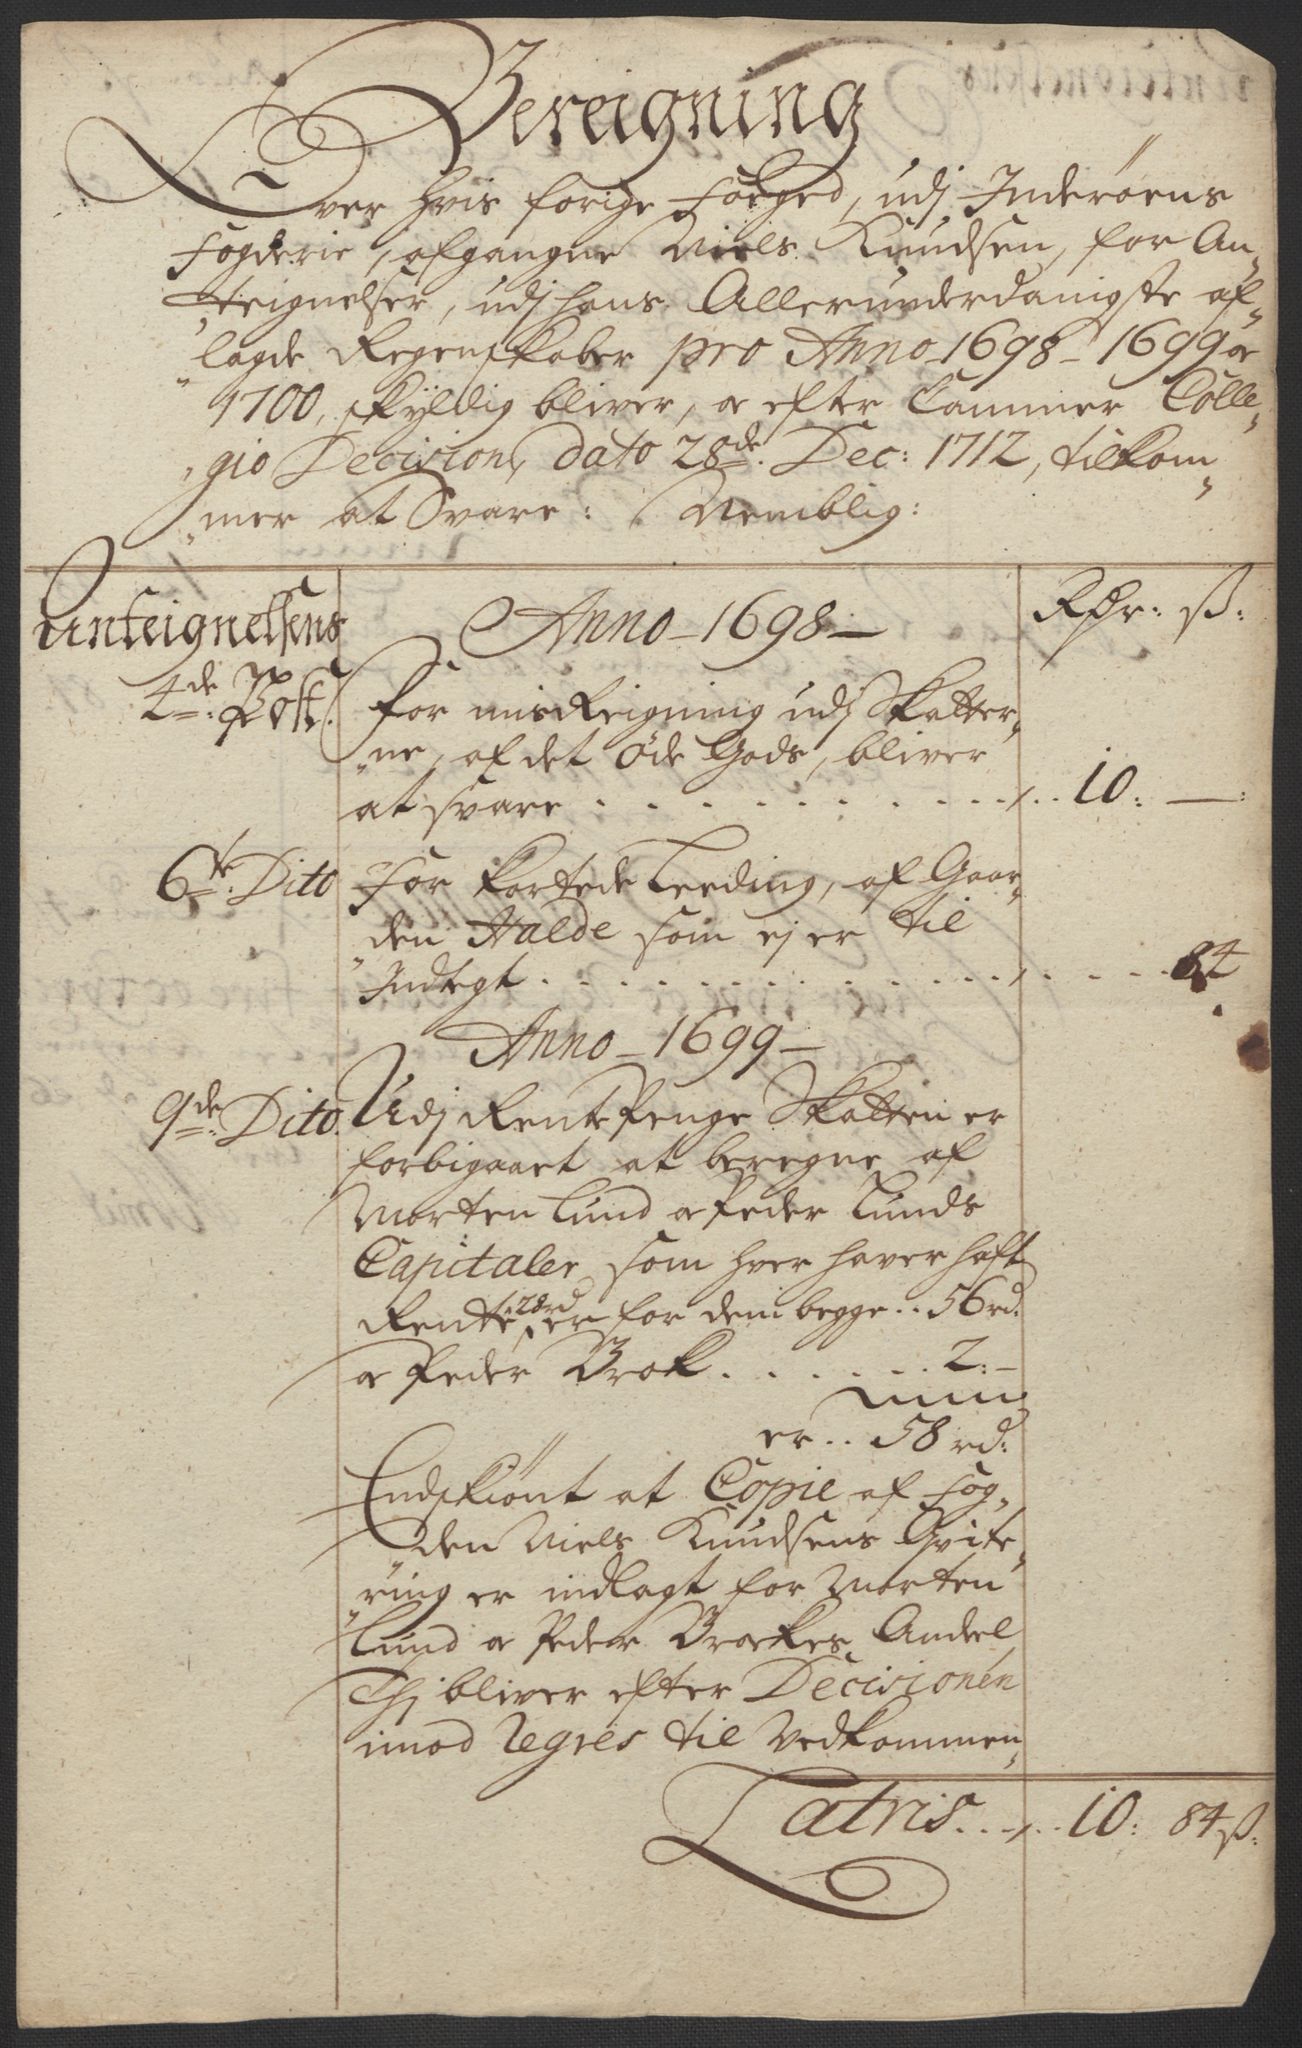 Bereigning
Over hvis forige Foeged, udj Inderöens
Fogderie, afgangne Niels Knudsen, for An-
teignelser, udj hans Allerunderdanigste af-
lagde Regenskaber pro Anno 1698 - 1699 &
1700, skÿldig bliver, & efter Cammer Colle-
gio Decision, dato 28de. Dec: 1712, tilkom-
mer at Svare: Nemblig:
Anteignelsens Anno - 1698 - Rdr: ß:
4de. Post. For misReigning udj Skatter-
ne, af det öde Gods, bliver
at svare . . . . . . . . . . 10: —:
6te. Dito For kortede Leeding, af Gaar-
den Halde som ej er til
Indtegt . . . . . . . . . . 84
Anno - 1699 -
9de. Dito. Udj RentePenge Skatten er
forbigaaet at beregne af
Morten Lund & Peder Lunds
Capitaler som hver haver haft
Rente 28rd er for dem begge .. 56rd:
& Peder Brok . . . . . . 2: -
er .. 58 rd:
Endskiönt at Copie af Fog-
den Niels Knudsens Qvite-
ring er indlagt for Morten
Lund & Peder Brockes Andeel
Thj bliver efter Decisionen
imod Regres til Vedkommen-
Latris . . . 10: 84ß: